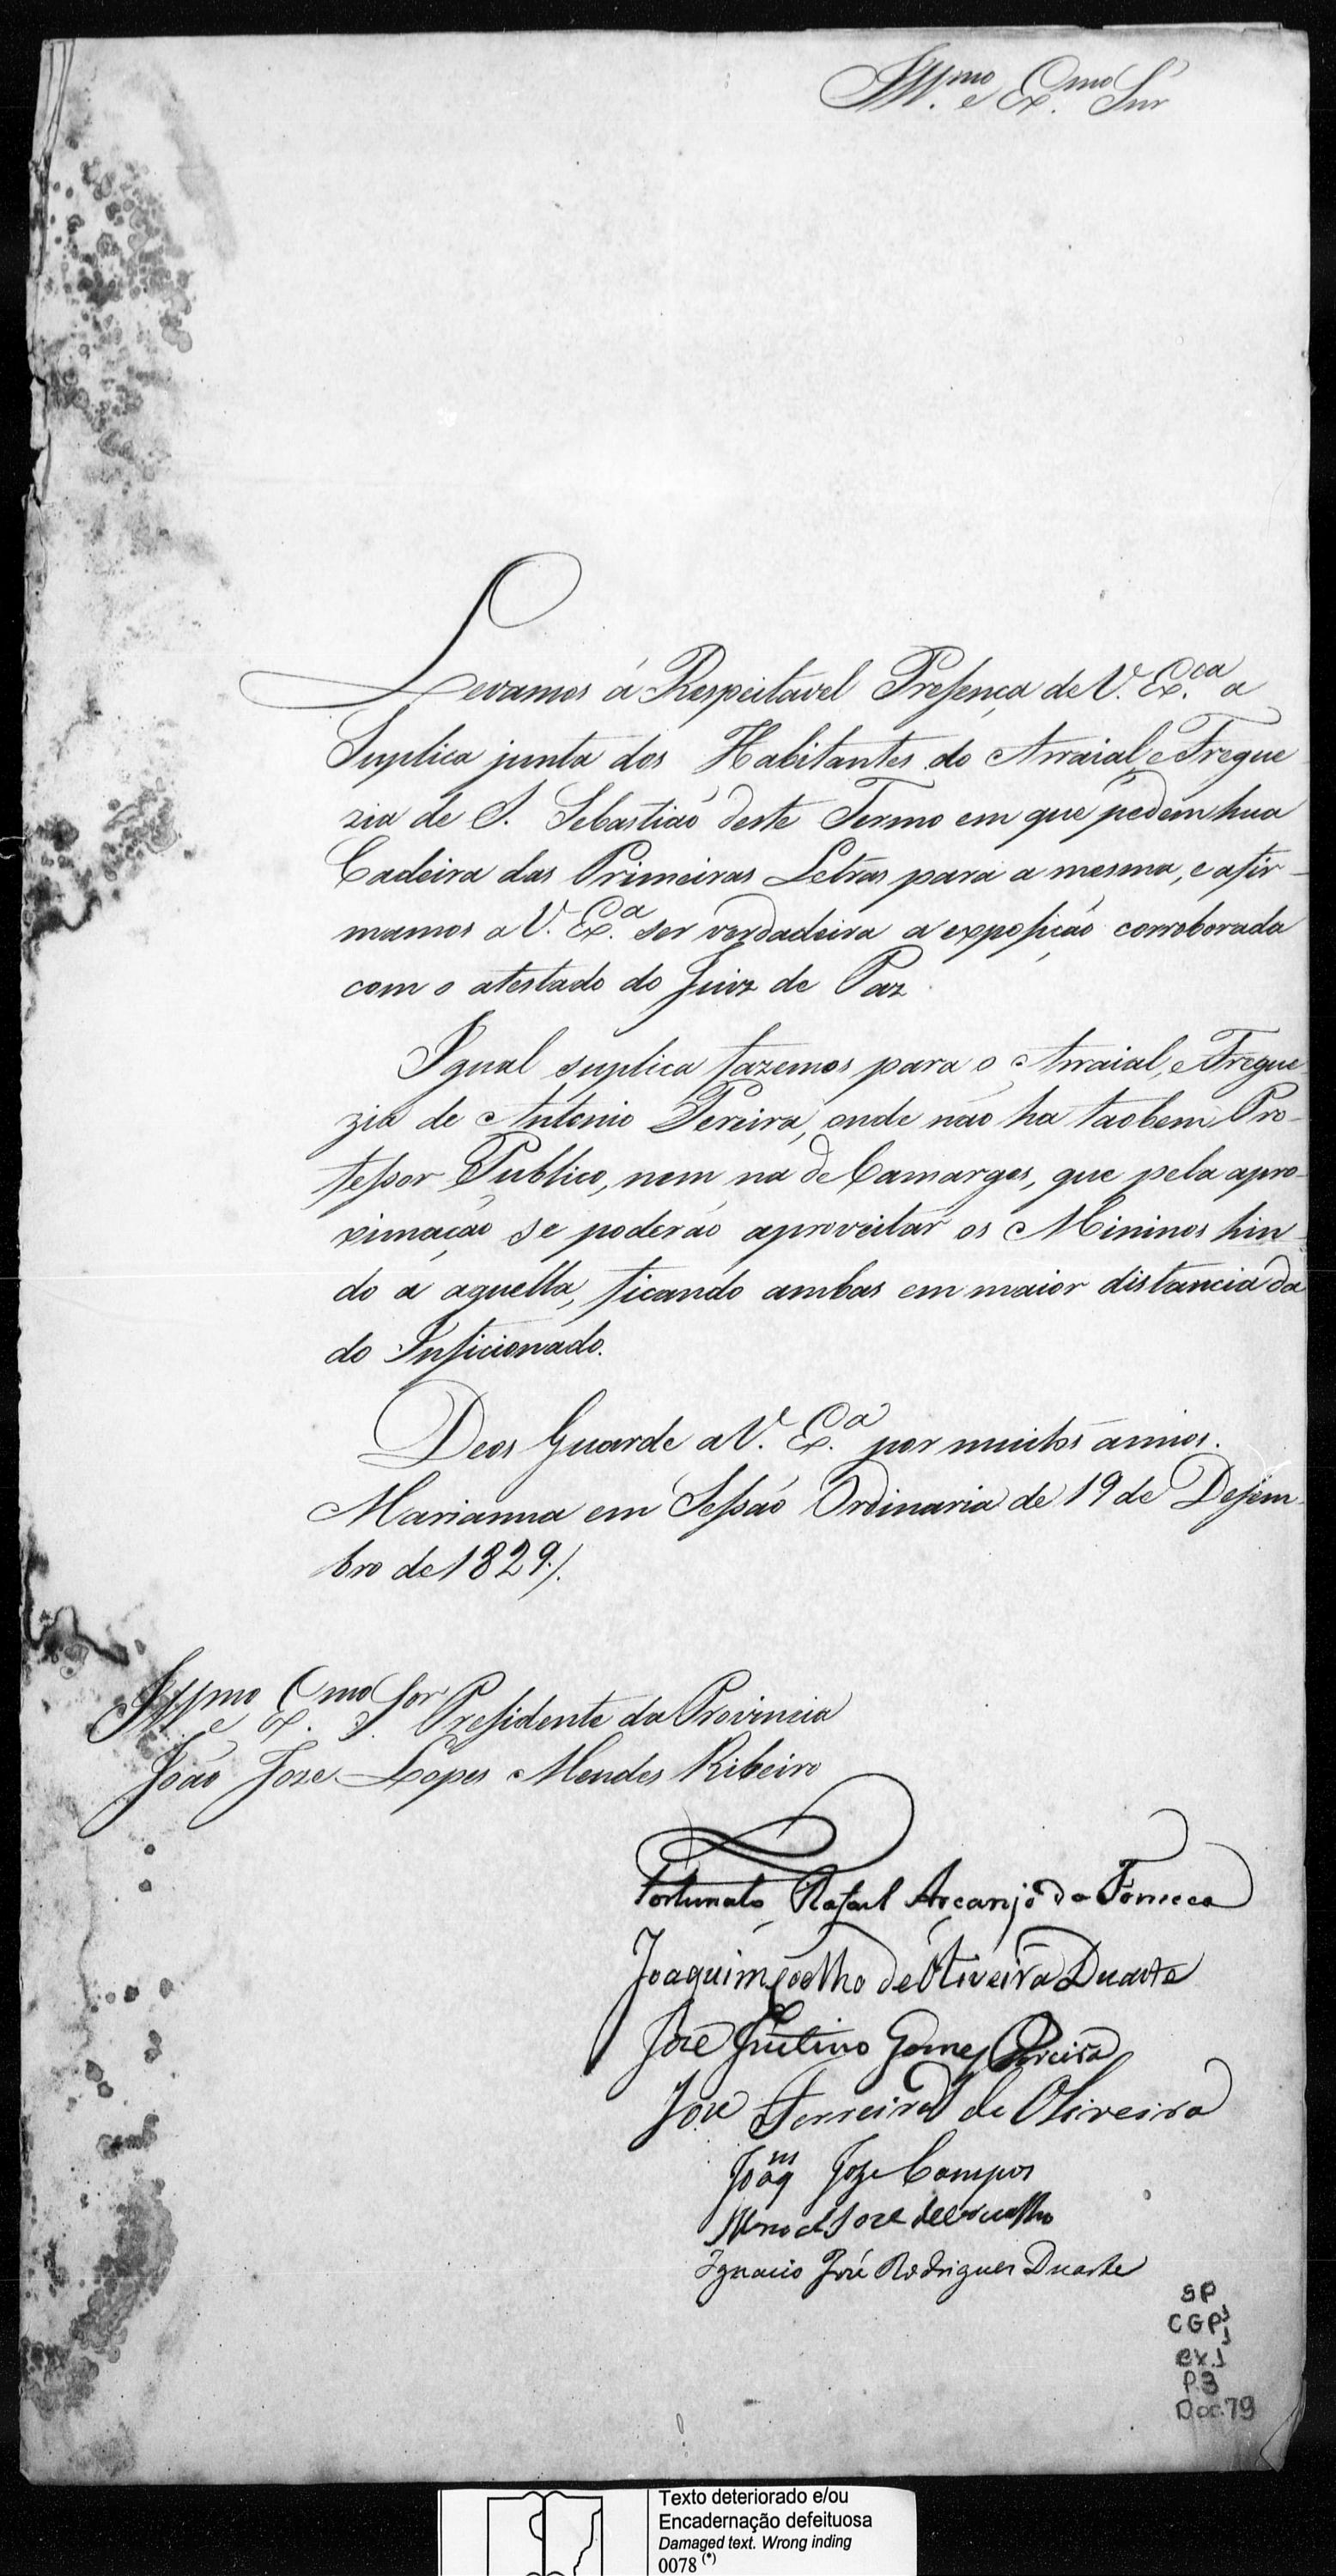 Ill.mo e Ex.mo Snr
Levamos á Respeitavel Presença de V. Ex.ca a
Suplica junta dos Habitantes do Arraial, e Fregue
zia de S. Sebastião deste Termo em que pedem hua
Cadeira das Primeiras Letras para a mesma, e afir-
mamos a V. Ex.a ser verdadeira a exposição corroborada
com o atestado do Juiz de Paz.
Igual suplica fazemos para o Arraial, e Fregue
zia de Antonio Pereira, onde não ha taobem Pro-
fessor Publico, nem na de Camargos, que pela apro-
ximação se poderáo aproveitar os Mininos hin-
do a aquella, ficando ambas em maior distancia da
do Inficionado.
Deos Guarde a V. Ex.a por muitos annos.
Marianna em Sessão Ordinaria de 19 de Desem-
bro de 1829./.
Ill.mo e Ex.mo Sor Presidente da Provincia
João Joze Lopes Mendes Ribeiro
Fortunato Rafael Arcanjo da Fonseca
Joaquim Coelho de Oliveira Duarte
Joze Justino Gomes Pereira
Joze Ferreira de Oliveira
Joaq.m Joze Campos
Manoel Joze de Carvalho
Ignacio José Rodrigues Duarte
SP
CGP1
cx.1
P.3
Doc.79
Texto deteriorado e/ou
Encadernação defeituosa
Damaged text. Wrong inding
0078 (*)